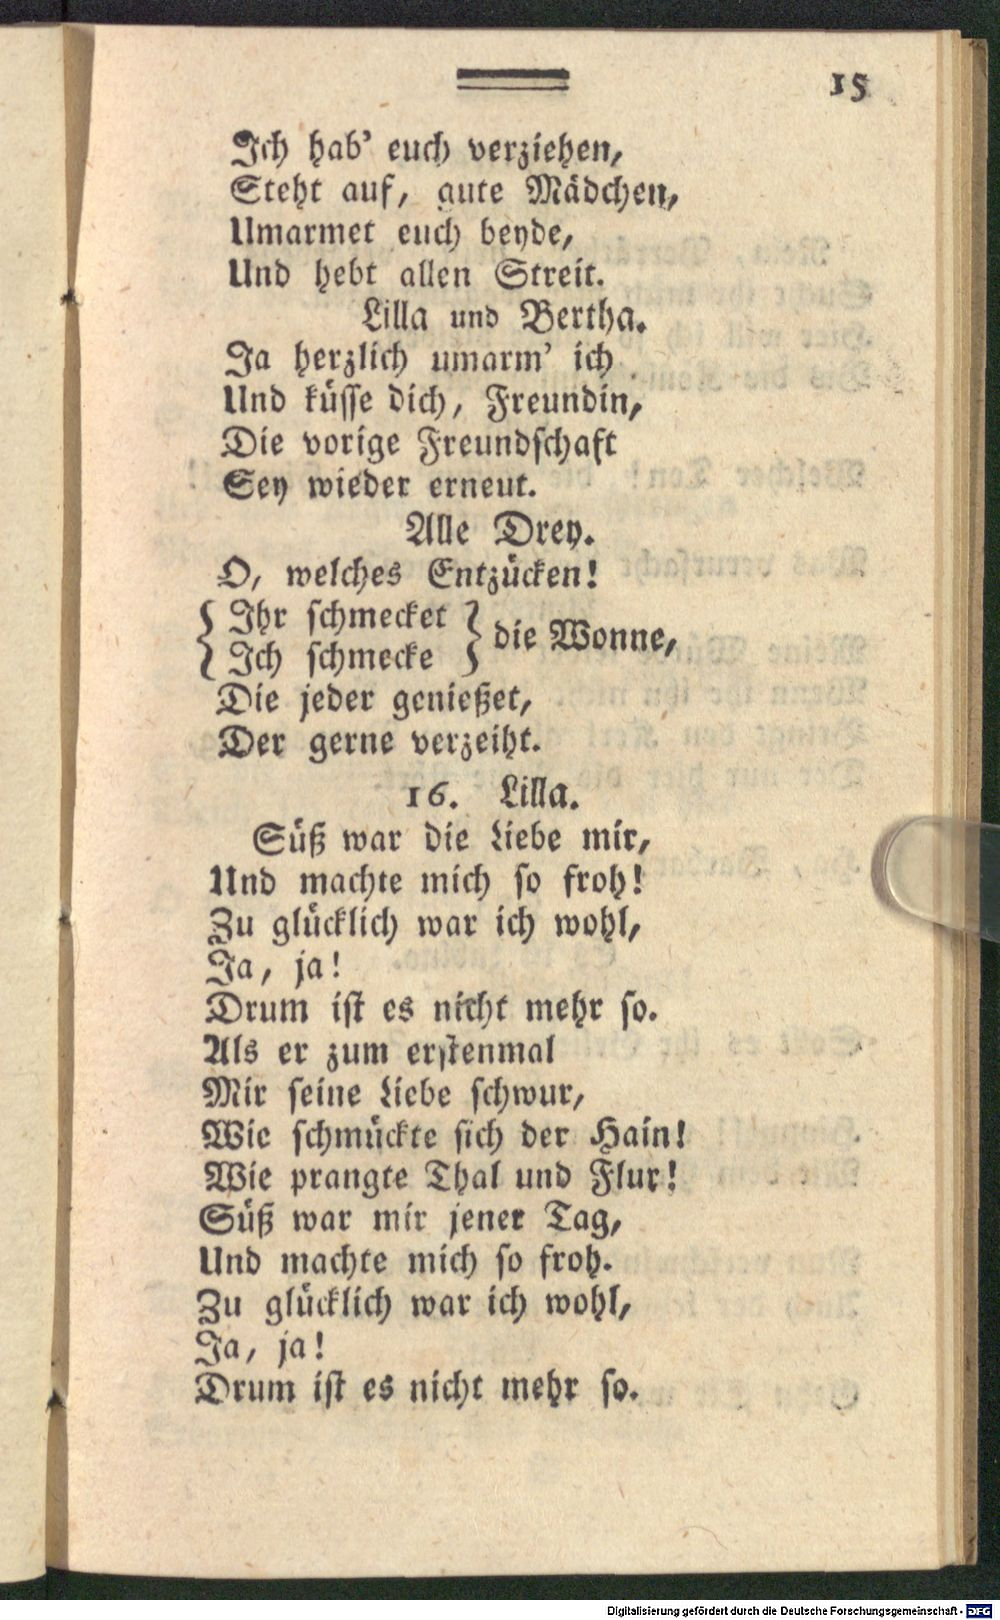 15
Ich hab' euch verziehen,
Steht auf, gute Mädchen,
Umarmet euch beyde,
Und hebt allen Streit.
Lilla und Bertha.
Ja herzlich umarm' ich
Und küsse dich, Freundin,
Die vorige Freundschaft
Sey wieder erneut.
Alle Drey.
O, welches Entzücken!
{Ihr schmecket
Ich schmecke} die Wonne,
Die jeder genießet,
Der gerne verzeiht.
16. Lilla.
Süß war die Liebe mir,
Und machte mich so froh!
Zu glücklich war ich wohl,
Ja, ja!
Drum ist es nicht mehr so.
Als er zum erstenmal
Mir seine Liebe schwur,
Wie schmückte sich der Hain!
Wie prangte Thal und Flur!
Süß war mir jener Tag,
Und machte mich so froh.
Zu glücklich war ich wohl,
Ja, ja!
Drum ist es nicht mehr so.
Digitalisierung gefördert durch die Deutsche Forschungsgemeinschaft - DFG